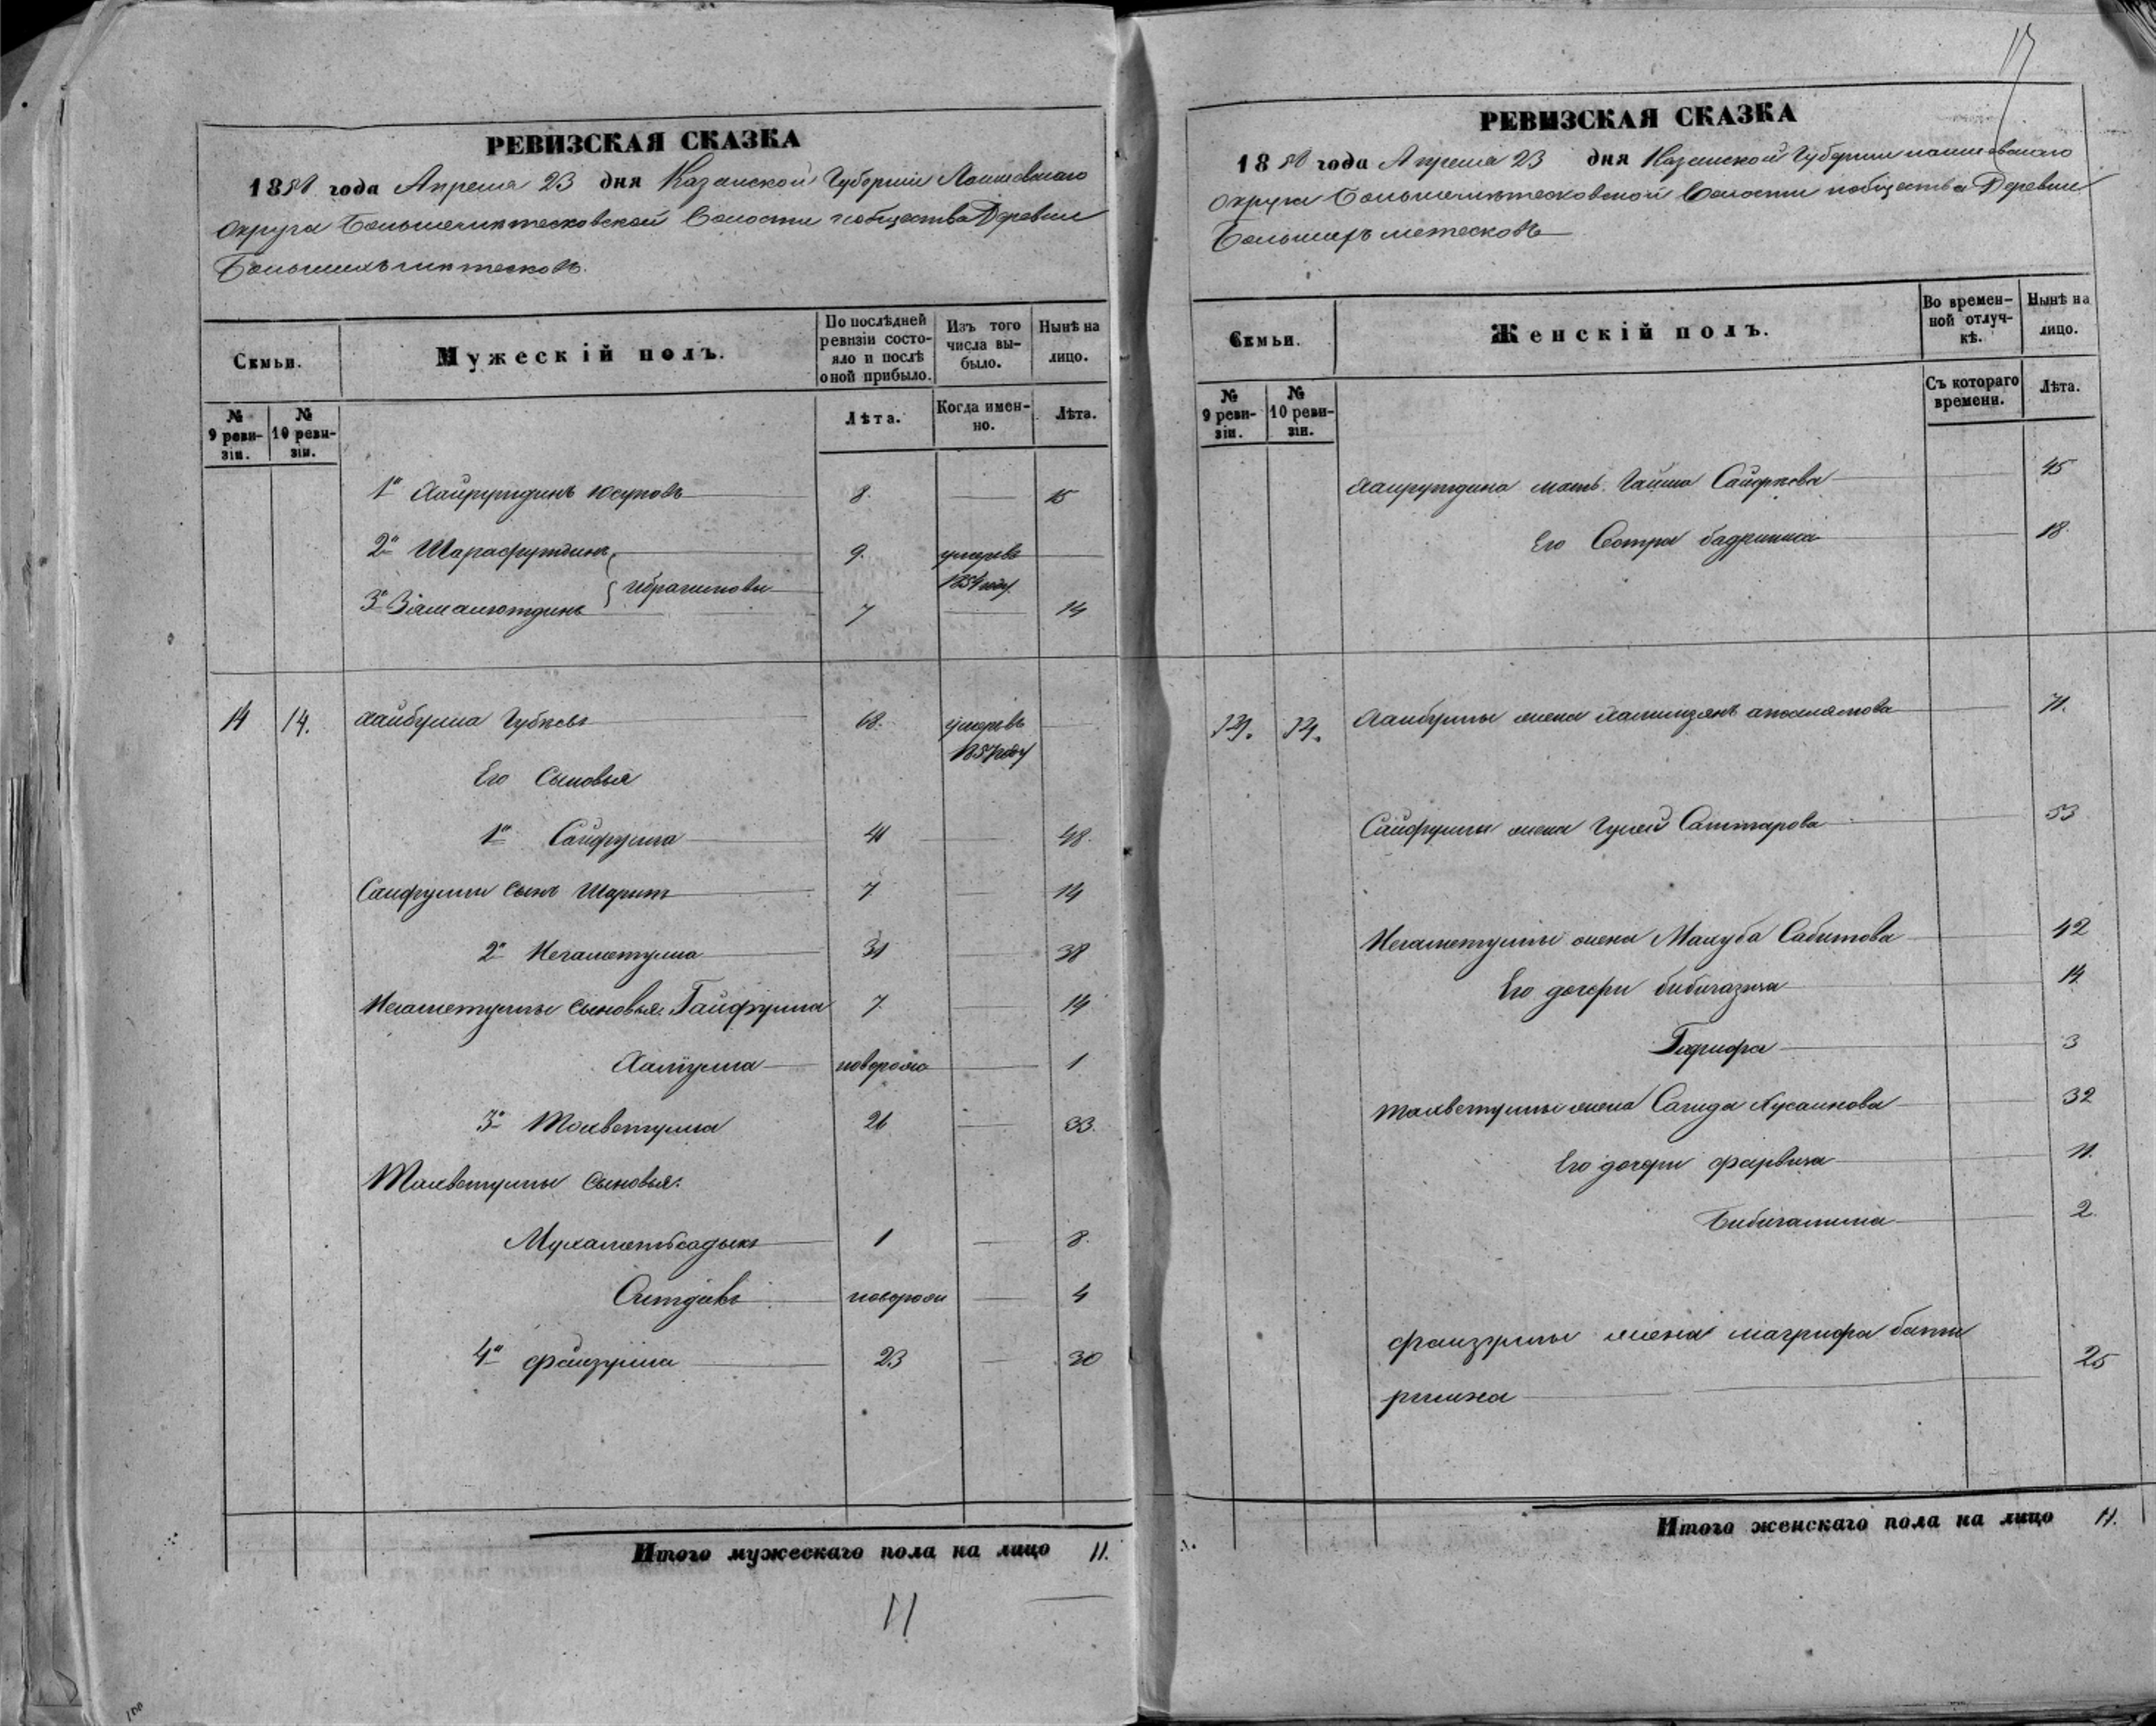 РЕВИЗСКАЯ СКАЗКА
1858 года Апреля 23 дня Казанской Губернии Лаишевскаго
округа Большеметесковской Волости и общества Деревни
Большихъ метесковъ.
Семьи.
Мужескій полъ.
По послѣдней ревизіи состояло и послѣ оной прибыло.
Изъ того числа выбыло.
Нынѣ на лицо.
№ 9 ревизіи.
№ 10 ревизіи.
Лѣта.
Когда именно.
Лѣта.
1й Хайрутдинъ Юсуповъ 8. 15
2й Шарафутдинъ 9. умеръ въ 1854 году
Ибрагимовы
3й Замалютдинъ 7 14
14 14. Хайбулла Губаевъ 68. умеръ въ 1857 году
Его Сыновья
1й Сайфулла 41 48.
Сайфуллы сынъ Шарип 7 14
2й Негаметулла 31 38
Негаметуллы сыновья Гайфулла 7 14
Халиулла новорож 1
3й Тохветулла 26 33.
Тохветуллы сыновья:
Мухаметсадыкъ 1 8.
Ситдикъ новорож 4
4й Файзулла 23 30
Итого мужескаго пола на лицо 11.
11
17
РЕВИЗСКАЯ СКАЗКА
1858 года Апреля 23 дня Казанской Губернии Лаишевскаго
округа Большеметесковской Волости и общества Деревни
Большихъ метесковъ
Семьи.
Женскій полъ.
Во временной отлучкѣ.
Нынѣ на лицо.
№ 9 ревизіи.
№ 10 ревизіи.
Съ котораго времени.
Лѣта.
Хайрутдина мать Гайша Сайфкова 45
Его Сестра Бадриниса 18.
14. 14. Хайбуллы жена 71.
Сайфуллы жена Гулей Саттарова 53
Негаметуллы жена Махуба Сабитова 42
Его дочери Бибигазиза 14
Гарифа 3
Тохветуллы жена Сагида Хусаинова 32
Его дочери фарвиза 11.
Бибигалима 2.
файзуллы жена магрифа
25
Итого женскаго пола на лицо 11.